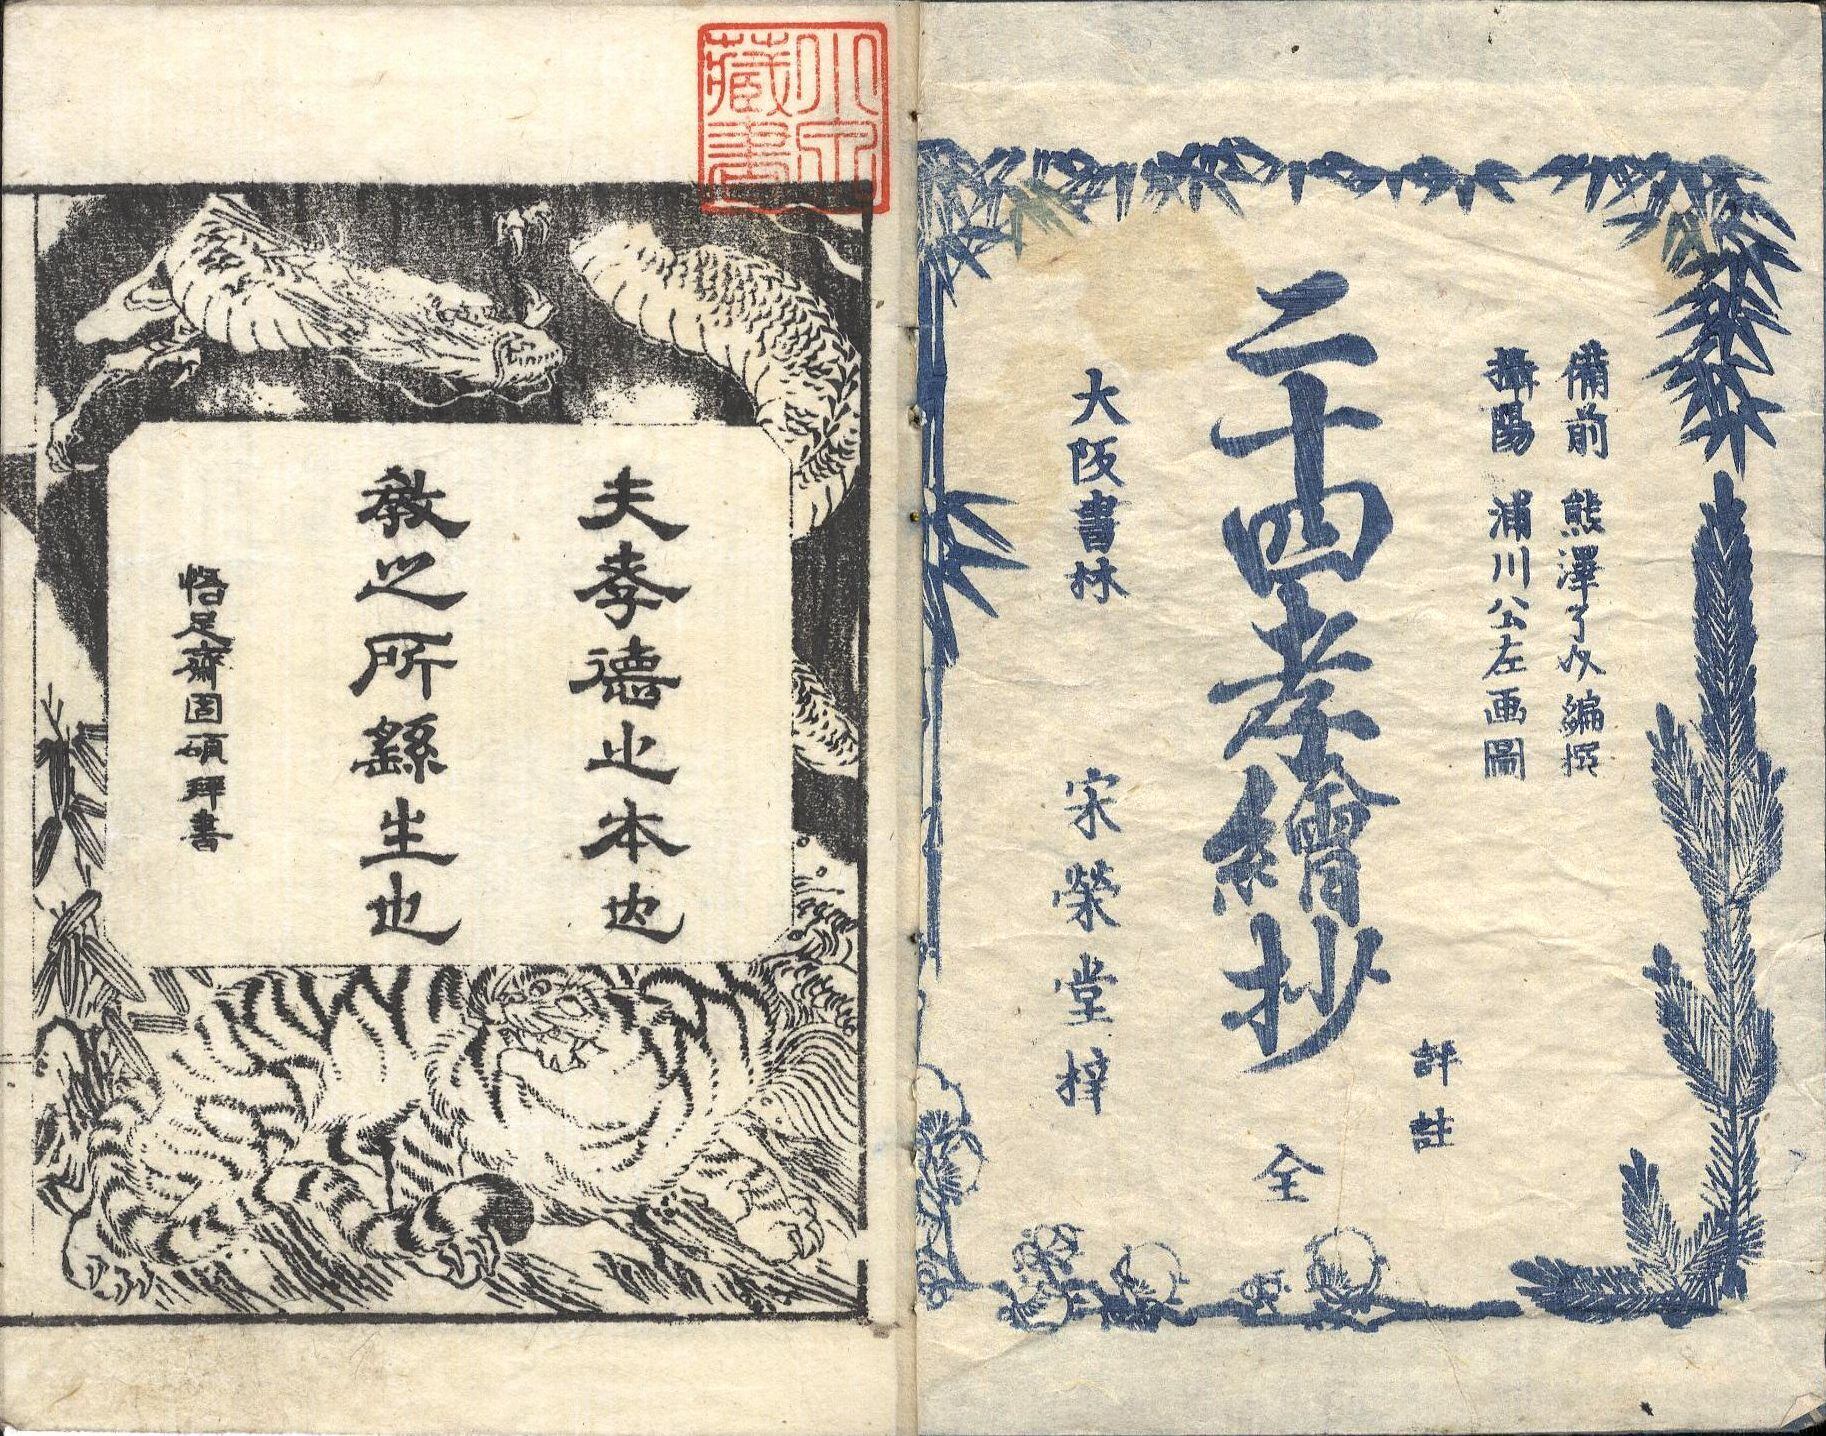 備前 熊澤了㳄編撰
攝陽 浦川公左画圖
評註
二十四孝繪抄 全
大阪書林 宋榮堂梓
夫孝德之本也
教之所繇生也
悟足齋固碩拜書
藏書